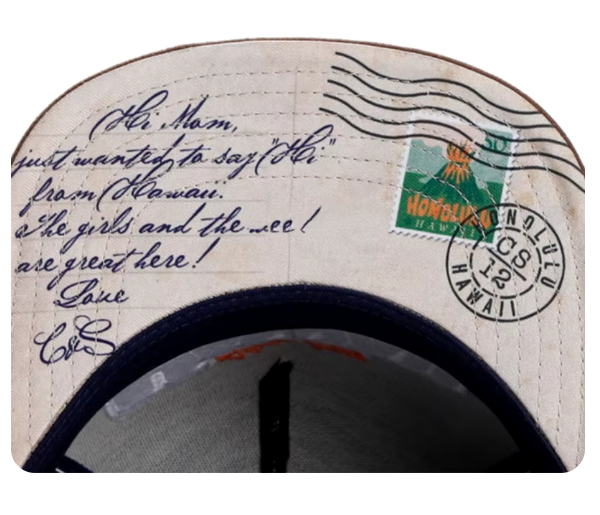 Hi Mom,
just wanted to say "Hi"
from Hawaii.
The girls and the ...ee!
are great here!
Love
C&S
50¢
HONOLULU
HAWAII
HONOLULU
CS
12
HAWAII